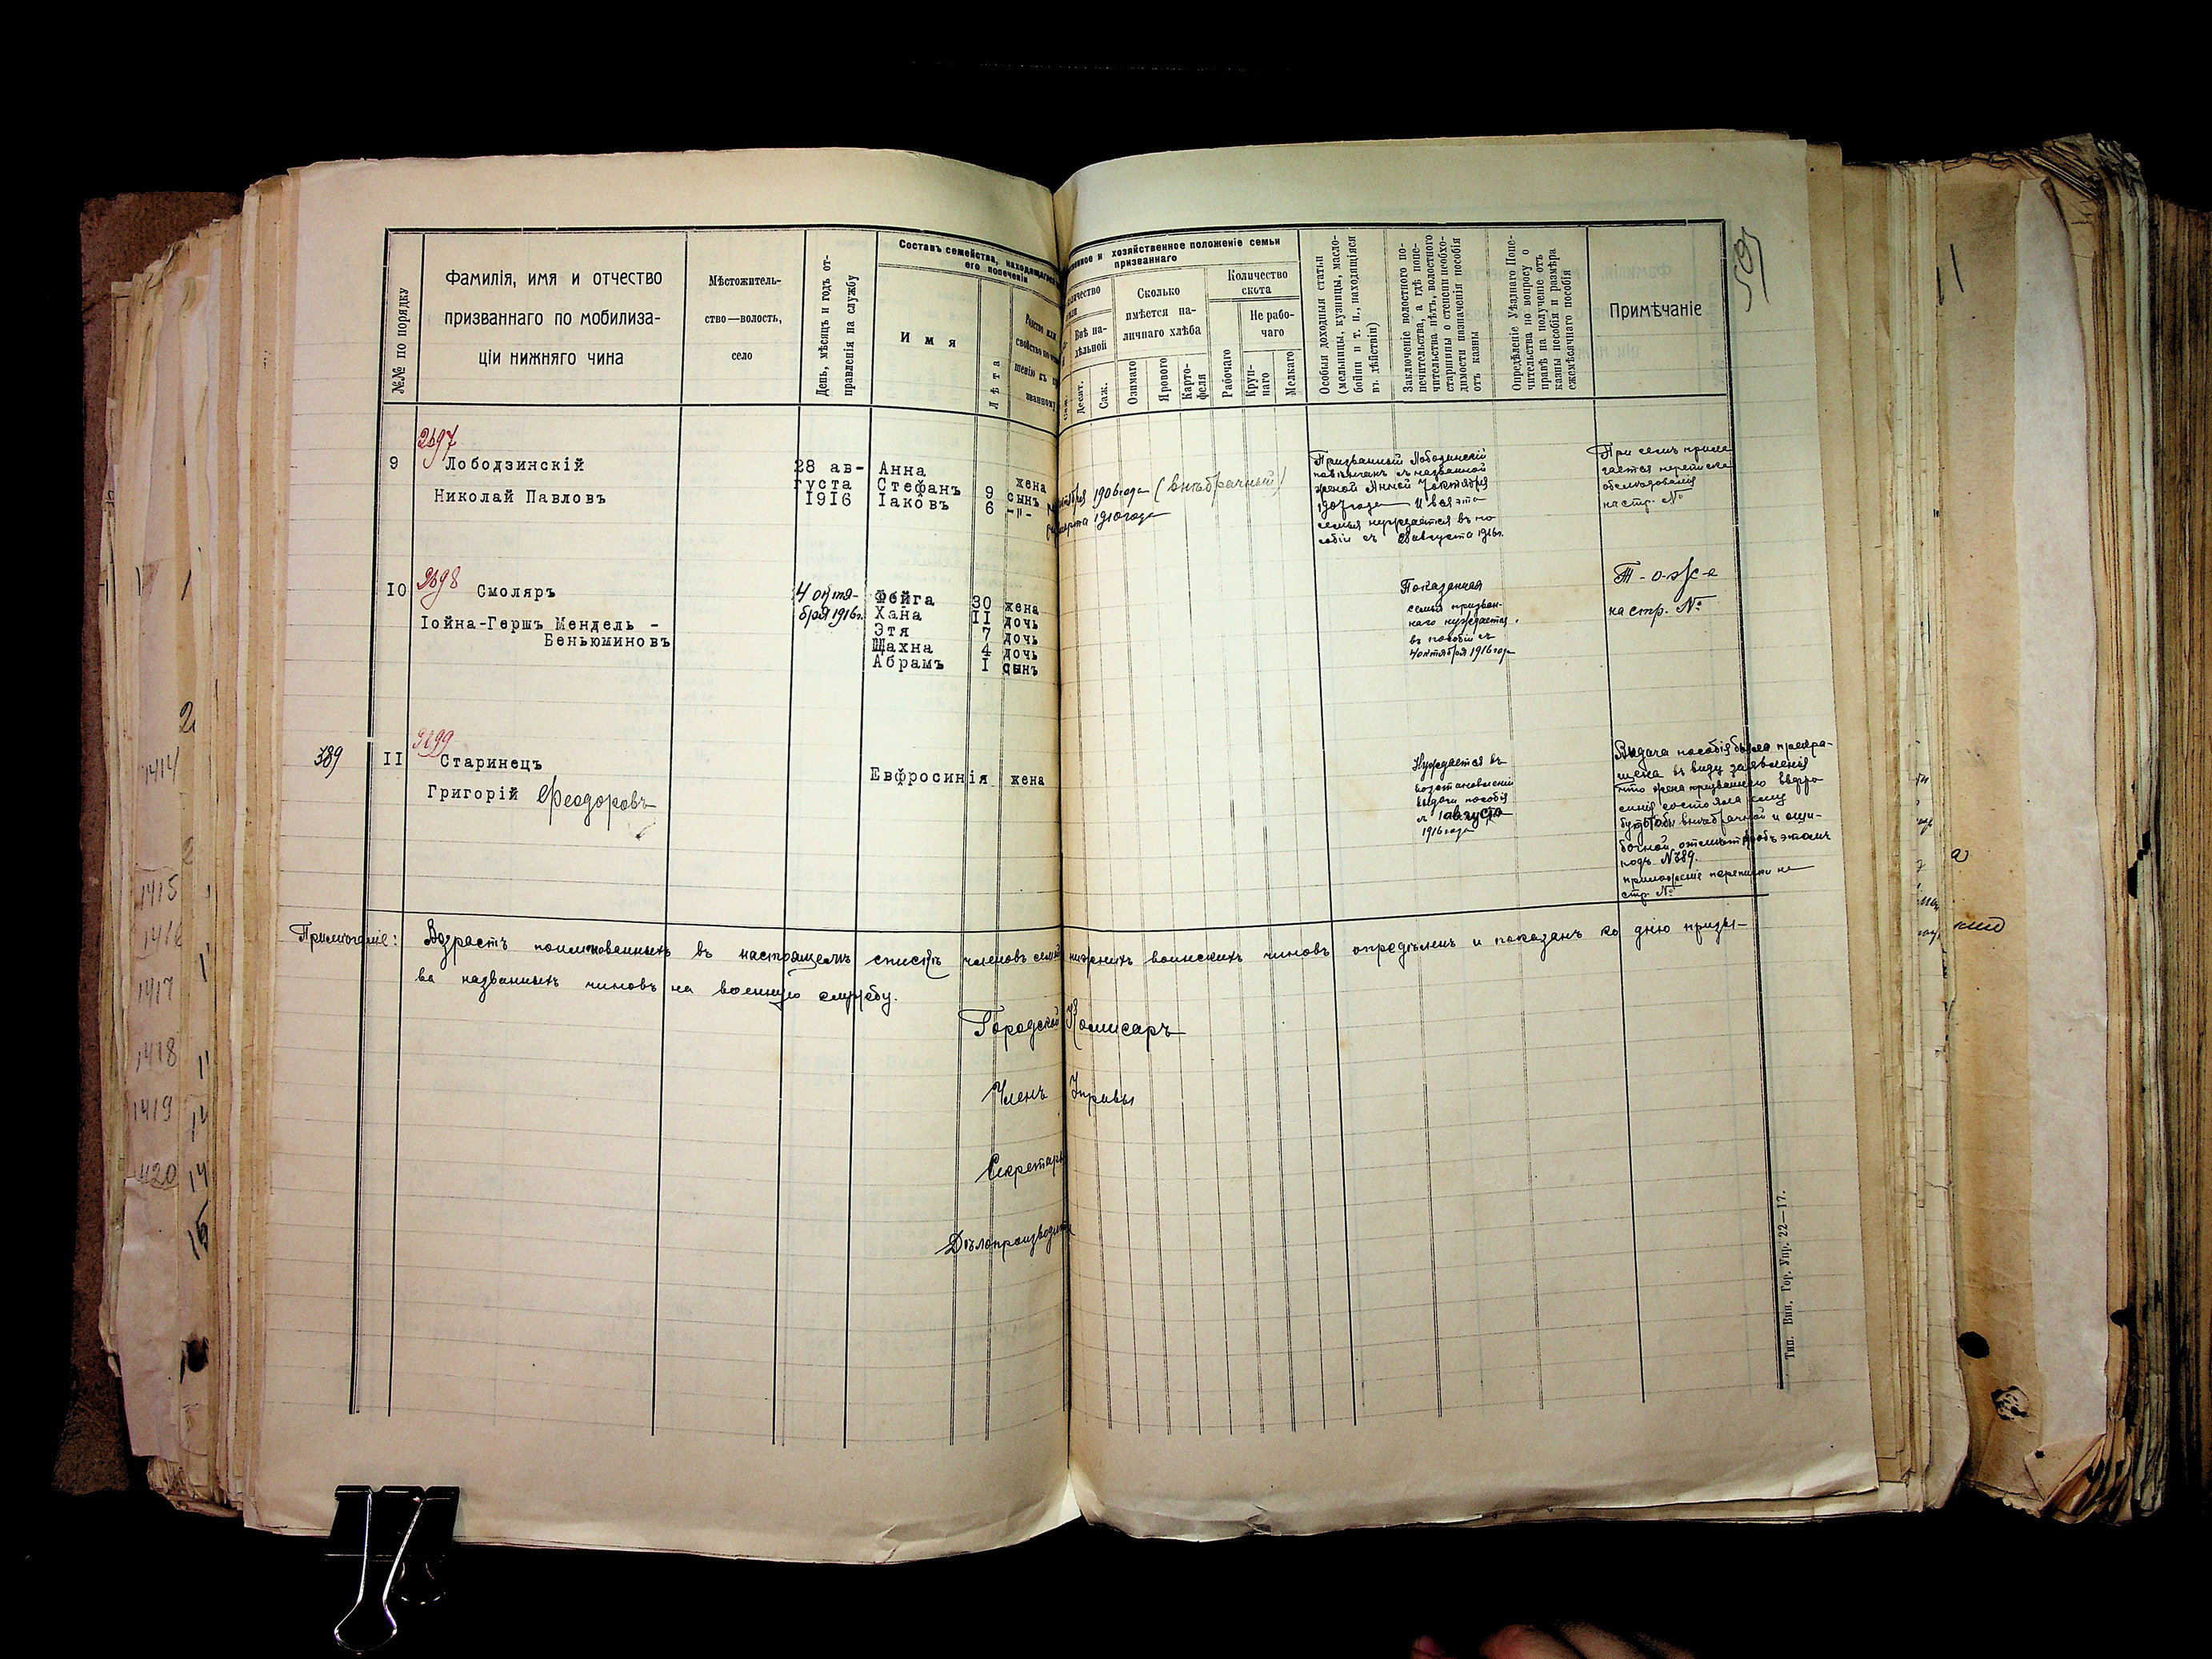 №№ по порядку
Фамилія, имя и отчество
призваннаго по мобилиза-
ціи нижняго чина
Мѣстожитель-
ство—волость,
село
День, мѣсяцъ и годъ от-
правленія на службу
Составъ семейства, находящагося
его попеченіи
Имя
Лѣта
Родство или
свойство по отно-
шенію къ
званному
и хозяйственное положеніе семьи
призваннаго
Внѣ на-
дѣльной
Десят.
Саж.
Сколько
имѣется на-
личнаго хлѣба
Озимаго
Яроваго
Карто-
феля
Количество
скота
Рабочаго
Не рабо-
чаго
Круп-
наго
Мелкаго
Особыя доходныя статьи
(мельницы, кузницы, масло-
бойни и т. п., находящіяся
въ дѣйствіи)
Заключеніе волостного по-
печительства, а гдѣ попе-
чительства нѣтъ, волостного
старшины о степени необхо-
димости назначенія пособія
отъ казны
Опредѣленіе Уѣзднаго Попе-
чительства по вопросу о
правѣ на полученіе отъ
казны пособія и размѣра
ежемѣсячнаго пособія
Примѣчаніе
2697
9 Лободзинскій
Николай Павловъ
28 ав-
густа
1916
Анна жена
Стефанъ 9 сынъ
Іаковъ 6 -"-
1906 года (внѣбрачный)
марта 1910 года
Призванный Лободзинскій
повѣнчанъ съ названной
женой Анной 7 октября
1907 года И вся эта
семья нуждается въ по
собіи съ 28 августа 1916 г.
При семъ прила
гается переписка
обслѣдованія
на стр. №
2698
10 Смоляръ
Іойна-Гершъ Мендель -
Беньюминовъ
4 октя-
бря 1916 г.
Фейга 30 жена
Хана 11 дочь
Этя 7 дочь
Щахна 4 дочь
Абрамъ 1 сынъ
Показанная
семья призван-
наго нуждается
въ пособіи съ
4 октября 1916 года
Т-о-ж-е
на стр. №
389
2699
11 Старинецъ
Григорій Феодоровъ
Евфросинія жена
Нуждается въ
возстановленіи
выдачи пособія
съ 1 августа
1916 года
Выдача пособія была прекра-
щена въ виду заявленія
что жена призваннаго Евфро
синія состояла ему
будтобы внѣбрачной и оши-
бочной отмѣтк объ этомъ
подъ № 389.
приложеніе переписки на
стр. №
Примѣчаніе: Возрастъ поименованныхъ въ настоящемъ спискѣ членовъ семей нижнихъ воинскихъ чиновъ опредѣленъ и показанъ ко дню призы-
ва названныхъ чиновъ на военную службу.
Городской Комисаръ
Членъ Управы
Секретарь
Дѣлопроизводитель
Тип. Вин. Гор. Упр. 22—17.
1414
1415
1416
1417
1418
1419
1420